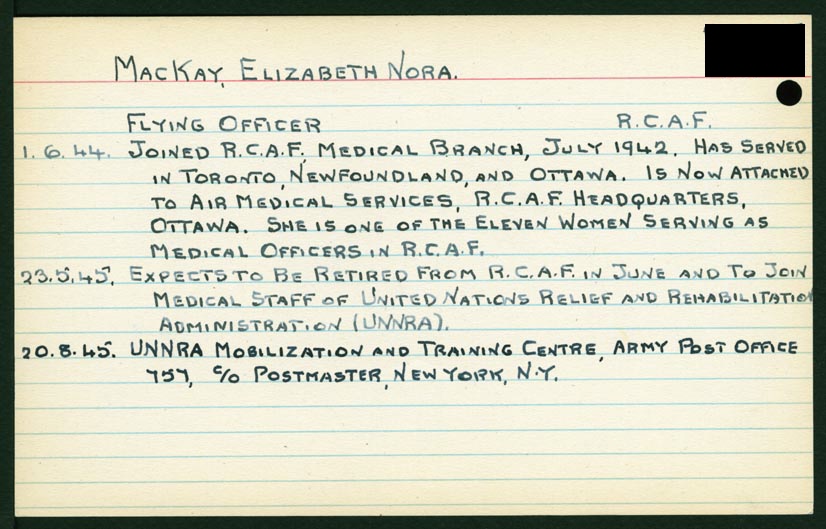 MacKay, Elizabeth Nora.
Flying Officer R.C.A.F.
1.6.44. Joined R.C.A.F. Medical Branch, July 1942. Has served
in Toronto, Newfoundland, and Ottawa. Is now attached
to Air Medical Services, R.C.A.F. Headquarters,
Ottawa. She is one of the Eleven Women Serving as
Medical Officers in R.C.A.F.
23.5.45. Expects to be Retired from R.C.A.F. in June and to Join
Medical Staff of United Nations Relief and Rehabilitation
Administration (UNNRA).
20.8.45. UNNRA Mobilization and Training Centre, Army Post Office
757, c/o Postmaster, New York, N.Y.